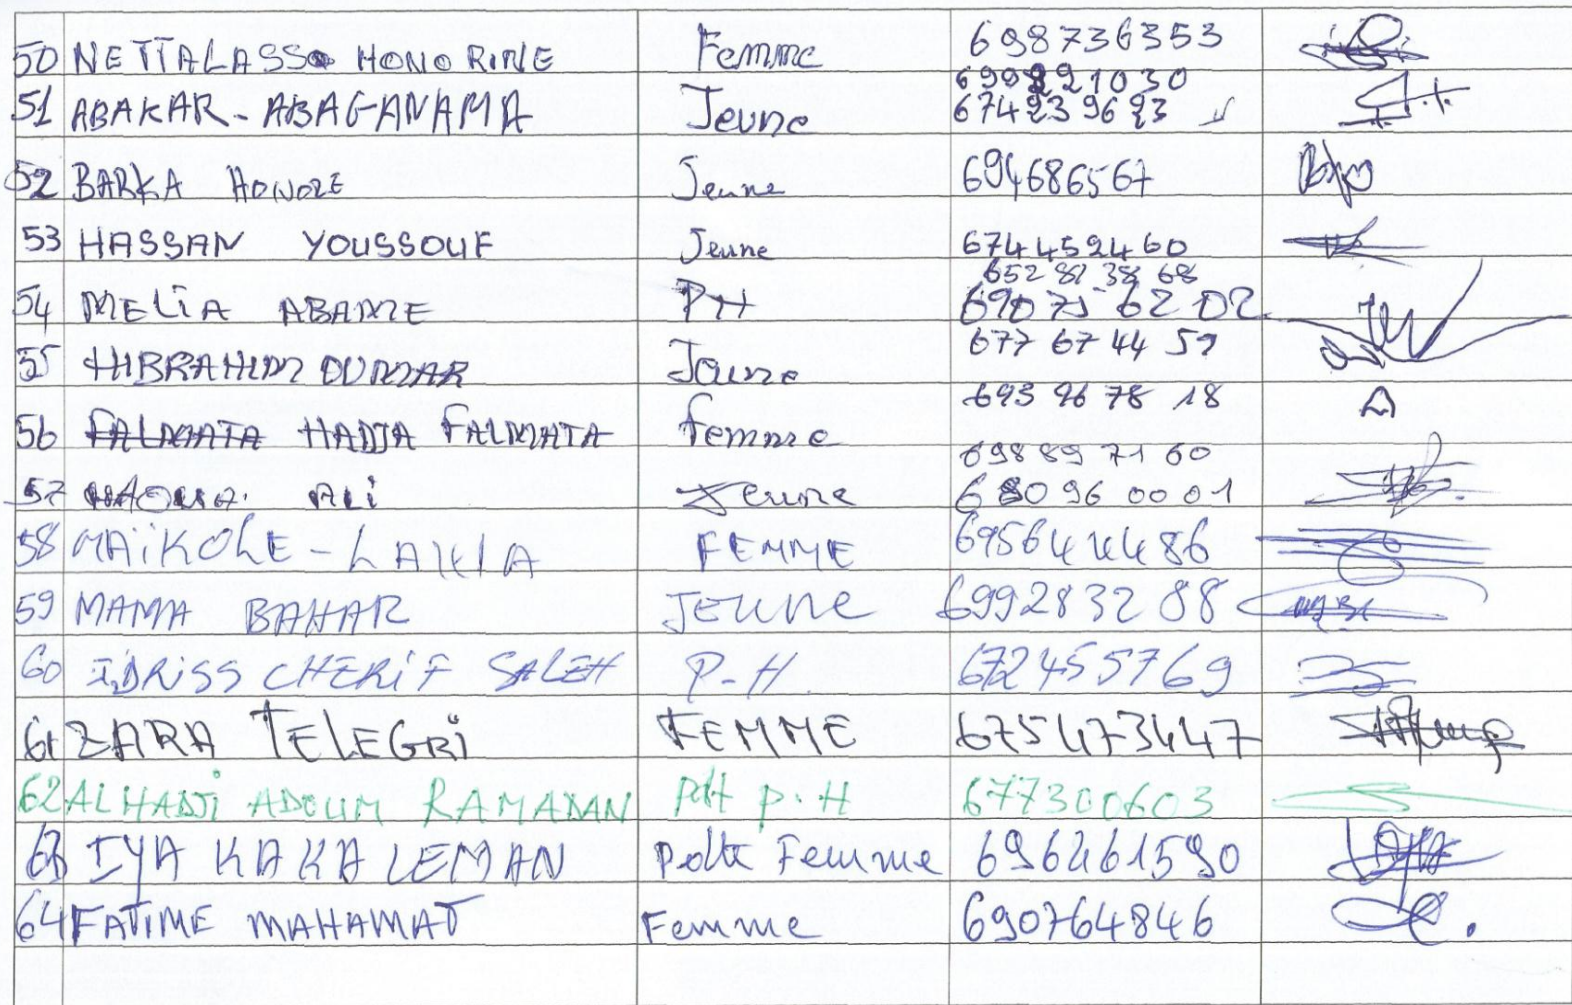 50 NETTALASSO HONORINE Femme 698736353
699221030
51 ABAKAR - ABAGANAMA Jeune 674239623
52 BARKA HONORE Jeune 694686567
53 HASSAN YOUSSOUF Jeune 674452460
652 81 38 68
54 MELIA ABAME PH 690 75 62 02
677 67 44 59
55 HIBRAHIM OUMAR Jeune
693 96 78 18
56 FALMATA HADJA FALMATA femme
698 89 71 60
57 HAOUA ALI Jeune 680 96 00 01
58 MAÏKOLE - LAKIA FEMME 695644486
59 MAMA BAHAR JEUNE 699283288
60 IDRISS CHERIF SALEH P-H 672455769
61 ZARA TELEGRI FEMME 675473447
62 ALHADJI ADOUM RAMADAN Pdt P.H 677300603
63 IYA KAKA LEMAN Pdte Femme 696461590
64 FATIME MAHAMAT Femme 690764846